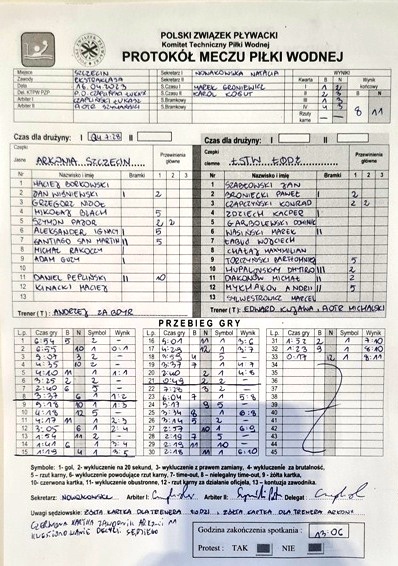 POLSKI ZWIĄZEK PŁYWACKI
Komitet Techniczny Piłki Wodnej
PROTOKÓŁ MECZU PIŁKI WODNEJ
Miejsce SZCZECIN Sekretarz I NOWAKOWSKA NATALIA WYNIKI
Zawody EKSTRAKLASA Sekretarz II Kwarta B N Wynik końcowy
Data 16.04.2023 S.Czasu I MAREK I 1 2
Del. KTPW PZP S.Czasu II KAROL II 2 3
Arbiter I ŁUKASZ S.Bramkowy III 1 3
Arbiter II PIOTR S.Bramkowy IV 4 3
Rzuty karne 8 11
Czas dla drużyny: I II Czas dla drużyny: I II
Czepki jasne ARKONIA SZCZECIN Przewinienia główne
Czepki ciemne ŁSTW ŁÓDŹ Przewinienia główne
Nr Nazwisko i imię Bramki 1 2 3 Nr Nazwisko i imię Bramki 1 2 3
1 MACIEJ BORKOWSKI 1 JAN
2 JAN WIŚNIEWSKI I 2 2 BRONICKI PAWEŁ I 2
3 GRZEGORZ 3 CZAPCZYŃSKI KONRAD 2 2
4 MIKOŁAJ BLACH 5 4 ZDZIECH KACPER I
5 SZYMON 2 2 5 DOMINIK
6 ALEKSANDER IGNACI 5 6 WASIŃSKI MAREK I
7 SANTIAGO SAN MARTIN II 5 7 ŁABUĆ WOJCIECH
8 MICHAŁ RAKOCZY 8 CHAŁAS MAXIMILIAN
9 ADAM 9 BARTŁOMIEJ 5
10 10 HUPALIVSKYI DMITRO III 2
11 DANIEL PEPLIŃSKI II 10 11 DIAKONÓW MICHAŁ II 2
12 KINACKI MACIEJ 12 ANDRII II 5
13 13 SYLWESTROWICZ MARCEL
Trener (T) : ANDRZEJ ZAGDYR Trener (T) : EDWARD KUJAWA, PIOTR MICHALSKI
PRZEBIEG GRY
L.p. Czas gry B N Symbol Wynik L.p. Czas gry B N Symbol Wynik L.p. Czas gry B N Symbol Wynik
1 6:54 5 2 - 16 5:01 11 1 3:6 31 1:52 2 1 7:10
2 6:55 10 1 0:1 17 4:29 12 1 3:7 32 1:23 9 1 8:10
3 3:07 3 2 - 18 3:59 4 5 - 33 0:17 12 1 8:11
4 4:35 10 2 - 19 3:37 7 1 4:7 34
5 4:10 11 1 1:1 20 2:40 2 1 4:8 35
6 3:25 2 2 - 21 0:49 2 2 - 36
7 2:40 6 5 - 22 7:37 2 - 37
8 2:37 6 1 1:2 23 6:04 7 1 5:8 38
9 10 1 1:3 24 5:17 9 5 - 39
10 4:18 12 5 - 25 3:34 8 1 6:8 40
11 4:17 11 1 2:3 26 3:14 5 2 - 41
12 3:05 6 1 2:4 27 2:57 10 1 6:9 42
13 1:54 11 2 - 28 2:19 7 5 - 43
14 1:41 6 1 3:4 29 2:19 11 10 - 44
15 1:19 1 3:5 30 2:18 11 1 6:10 45
Symbole: 1- gol, 2- wykluczenie na 20 sekund, 3- wykluczenie z prawem zamiany, 4- wykluczenie za brutalność,
5 - rzut karny, 6- wykluczenie powodujące rzut karny, 7- time-out, 8 - nielegalny time-out, 9 - żółta kartka,
10 - czerwona kartka, 11- wykluczenie obustronne, 12 - rzut karny za działanie oficjela, 13 - kontuzja zawodnika.
Sekretarz: NOWAKOWSKA Arbiter I: Arbiter II: Delegat
Uwagi sędziowskie: ŻÓŁTA KARTKA DLA TRENERA ŁODZI, ŻÓŁTA KARTKA DLA TRENERA ARKONII
CZERWONA KARTKA ZAWODNIK ARKONII 11
KWESTIONOWANIE DECYZJI SĘDZIEGO
Godzina zakończenia spotkania : 13:06
Protest : TAK NIE